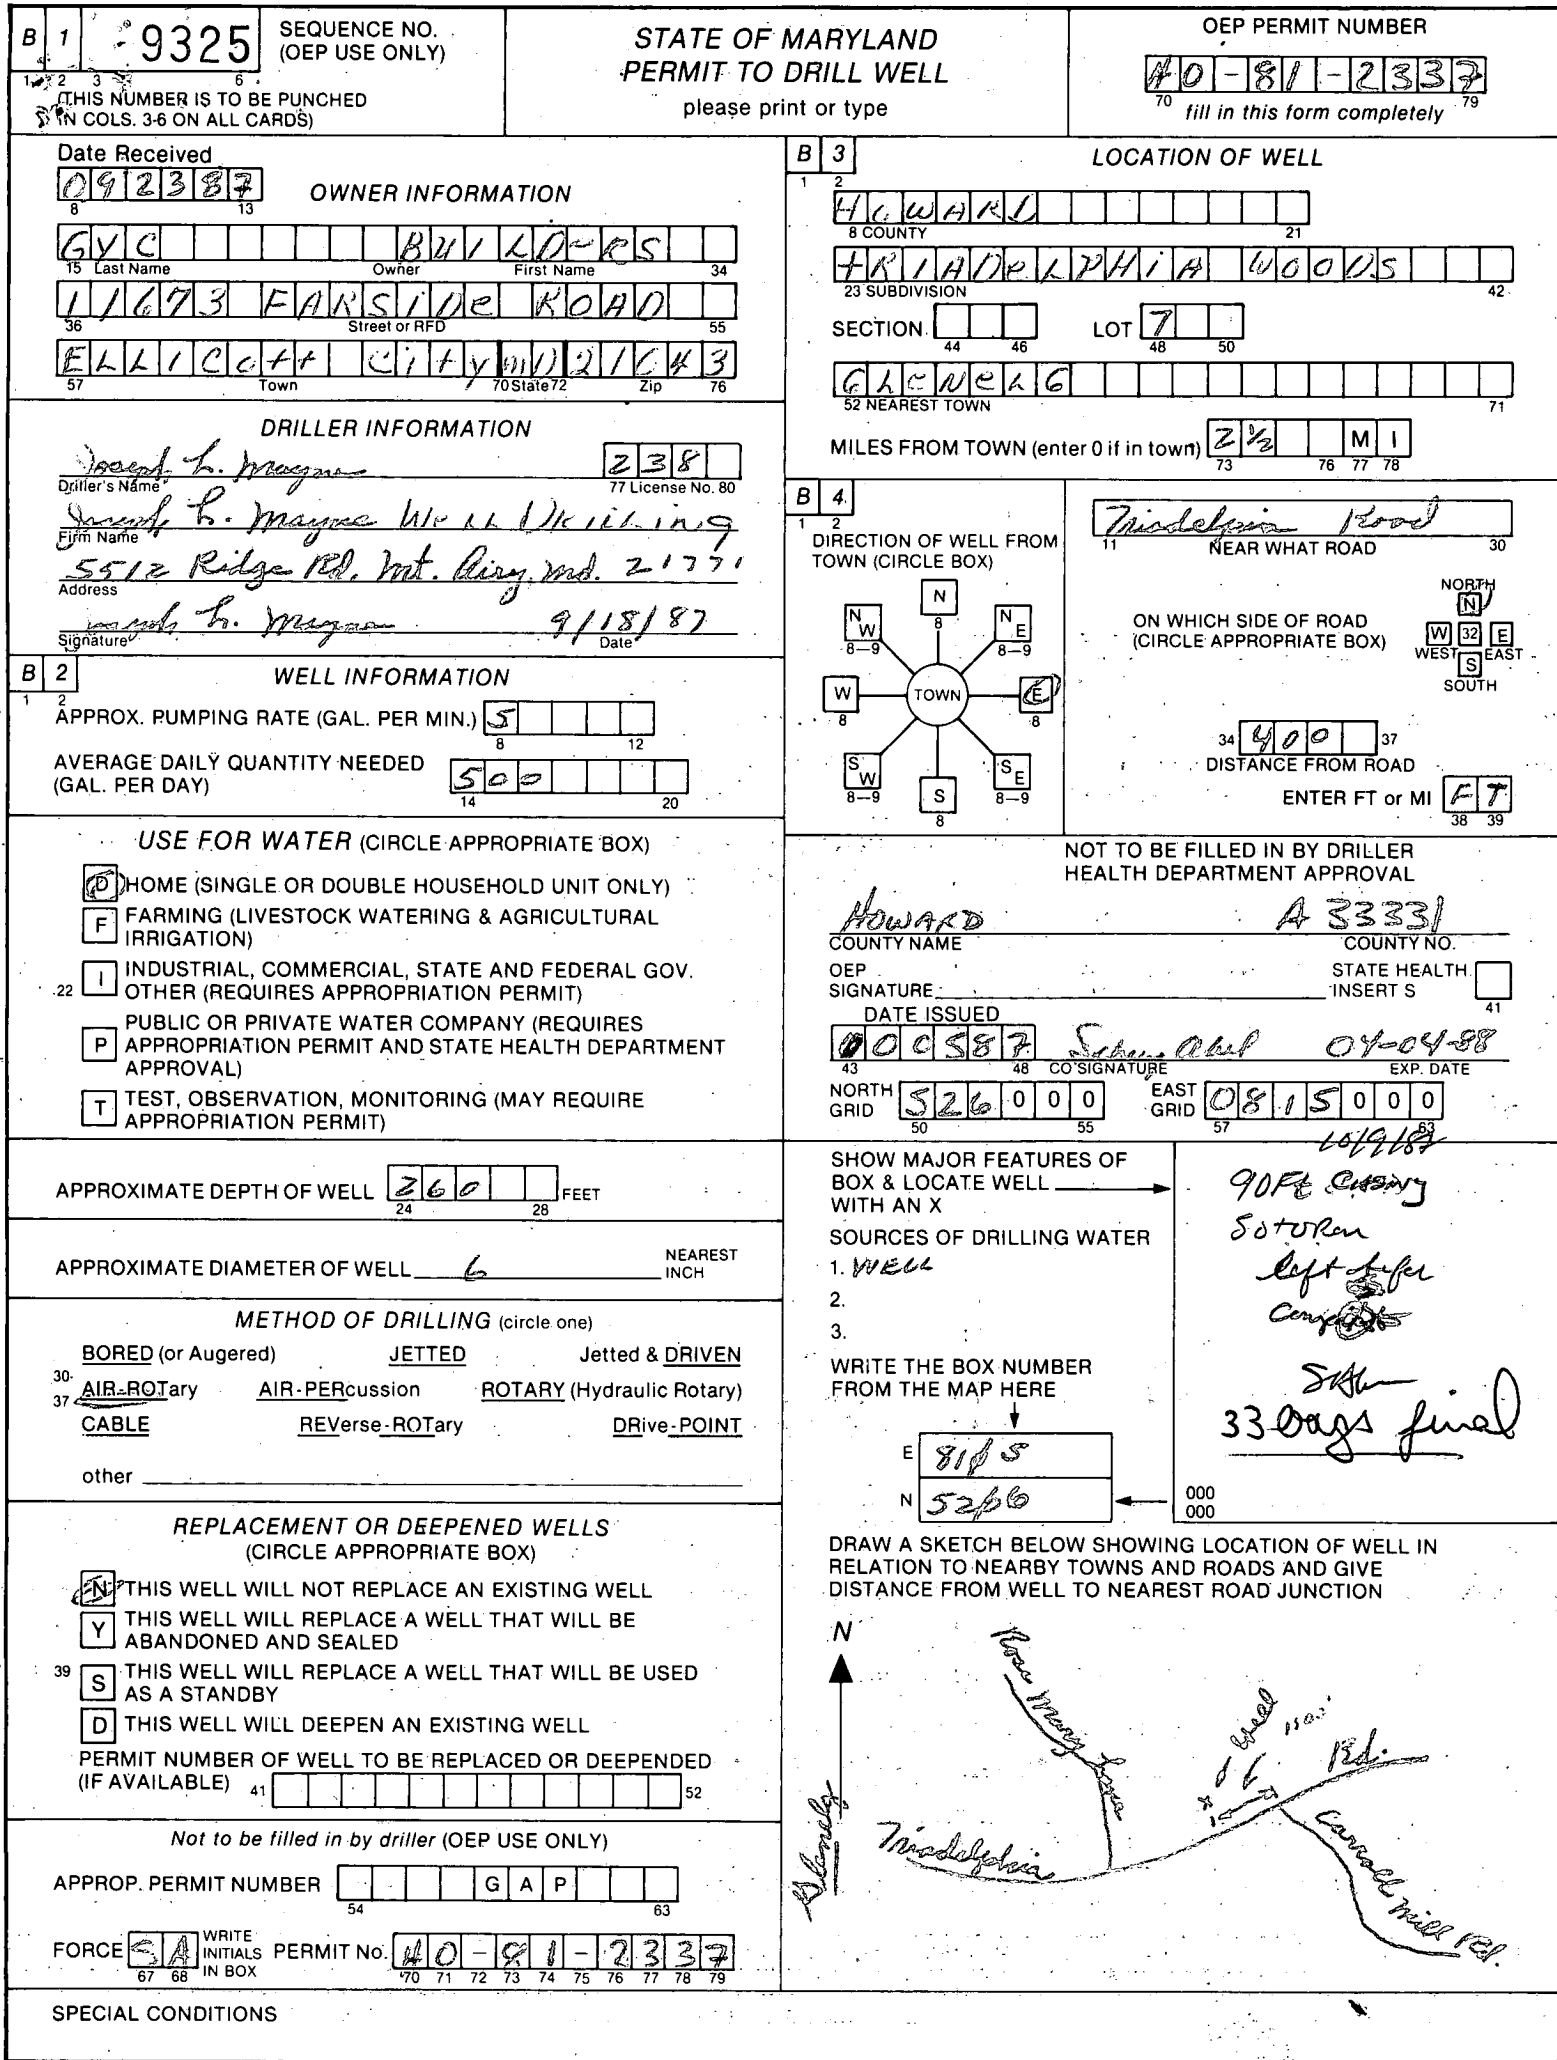 B 1 9325 SEQUENCE NO. (OEP USE ONLY)
1 2 3 6
(THIS NUMBER IS TO BE PUNCHED
IN COLS. 3-6 ON ALL CARDS)
STATE OF MARYLAND
PERMIT TO DRILL WELL
please print or type
OEP PERMIT NUMBER
HO-81-2337
70 79
fill in this form completely
Date Received
092387
8 13
OWNER INFORMATION
GYC BUILDERS
15 Last Name Owner First Name 34
11673 FARSIDE ROAD
36 Street or RFD 55
ELLICOtt City MD 21043
57 Town 70 State 72 Zip 76
DRILLER INFORMATION
Joseph L. Mayne 238
Driller's Name 77 License No. 80
Joseph L. Mayne Well Drilling
Firm Name
5512 Ridge Rd. Mt. Airy, Md. 21771
Address
Joseph L. Mayne 9/18/87
Signature Date
B 2 WELL INFORMATION
1 2
APPROX. PUMPING RATE (GAL. PER MIN.) 5
8 12
AVERAGE DAILY QUANTITY NEEDED
(GAL. PER DAY) 500
14 20
USE FOR WATER (CIRCLE APPROPRIATE BOX)
D HOME (SINGLE OR DOUBLE HOUSEHOLD UNIT ONLY)
F FARMING (LIVESTOCK WATERING & AGRICULTURAL
IRRIGATION)
22 I INDUSTRIAL, COMMERCIAL, STATE AND FEDERAL GOV.
OTHER (REQUIRES APPROPRIATION PERMIT)
P PUBLIC OR PRIVATE WATER COMPANY (REQUIRES
APPROPRIATION PERMIT AND STATE HEALTH DEPARTMENT
APPROVAL)
T TEST, OBSERVATION, MONITORING (MAY REQUIRE
APPROPRIATION PERMIT)
APPROXIMATE DEPTH OF WELL 260 FEET
24 28
APPROXIMATE DIAMETER OF WELL 6 NEAREST
INCH
METHOD OF DRILLING (circle one)
BORED (or Augered) JETTED Jetted & DRIVEN
30-
37 AIR-ROTary AIR-PERcussion ROTARY (Hydraulic Rotary)
CABLE REVerse-ROTary DRive-POINT
other
REPLACEMENT OR DEEPENED WELLS
(CIRCLE APPROPRIATE BOX)
N THIS WELL WILL NOT REPLACE AN EXISTING WELL
Y THIS WELL WILL REPLACE A WELL THAT WILL BE
ABANDONED AND SEALED
39 S THIS WELL WILL REPLACE A WELL THAT WILL BE USED
AS A STANDBY
D THIS WELL WILL DEEPEN AN EXISTING WELL
PERMIT NUMBER OF WELL TO BE REPLACED OR DEEPENDED
(IF AVAILABLE) 41 52
Not to be filled in by driller (OEP USE ONLY)
APPROP. PERMIT NUMBER GAP
54 63
FORCE SA WRITE INITIALS IN BOX PERMIT No. HO-81-2337
67 68 70 71 72 73 74 75 76 77 78 79
SPECIAL CONDITIONS
B 3 LOCATION OF WELL
1 2
HOWARD
8 COUNTY 21
tRIADeLPHiA WOODS
23 SUBDIVISION 42
SECTION LOT 7
44 46 48 50
GLeNeLG
52 NEAREST TOWN 71
MILES FROM TOWN (enter 0 if in town) 2 1/2 MI
73 76 77 78
B 4
1 2
DIRECTION OF WELL FROM
TOWN (CIRCLE BOX)
N
8
NW NE
8-9 8-9
W TOWN E
8 8
SW SE
8-9 8-9
S
8
Triadelphia Road
11 NEAR WHAT ROAD 30
ON WHICH SIDE OF ROAD
(CIRCLE APPROPRIATE BOX)
NORTH
N
W 32 E
WEST EAST
S
SOUTH
34 400 37
DISTANCE FROM ROAD
ENTER FT or MI FT
38 39
NOT TO BE FILLED IN BY DRILLER
HEALTH DEPARTMENT APPROVAL
HOWARD A 33331
COUNTY NAME COUNTY NO.
OEP
SIGNATURE STATE HEALTH
INSERT S
41
DATE ISSUED
100587 04-04-88
43 48 CO SIGNATURE EXP. DATE
NORTH
GRID 526000 EAST
GRID 0815000
50 55 57 63
SHOW MAJOR FEATURES OF
BOX & LOCATE WELL
WITH AN X
SOURCES OF DRILLING WATER
1. WELL
2.
3.
WRITE THE BOX NUMBER
FROM THE MAP HERE
E 815
N 526
10/9/87
90Ft Casing
left
33 Bags final
000
000
DRAW A SKETCH BELOW SHOWING LOCATION OF WELL IN
RELATION TO NEARBY TOWNS AND ROADS AND GIVE
DISTANCE FROM WELL TO NEAREST ROAD JUNCTION
N
Rose Mary Lane
well
1500'
Rd.
Triadelphia
Glenelg
Carroll Mill Rd.